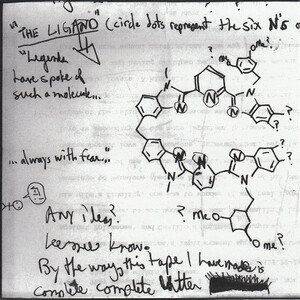 "THE LIGAND" (circle dots represent the six N's
"Legends
have spoke of
such a molecule...
N N N N
OMe?
?
?
N
?
...always with fear...
N N N N
?
Any idea?
? MeO
OMe?
Lee ones know.
By the way, this tape I have made is
complete complete utter